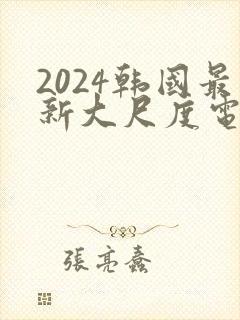 2024韩国最
新大尺度电
張亮蠢